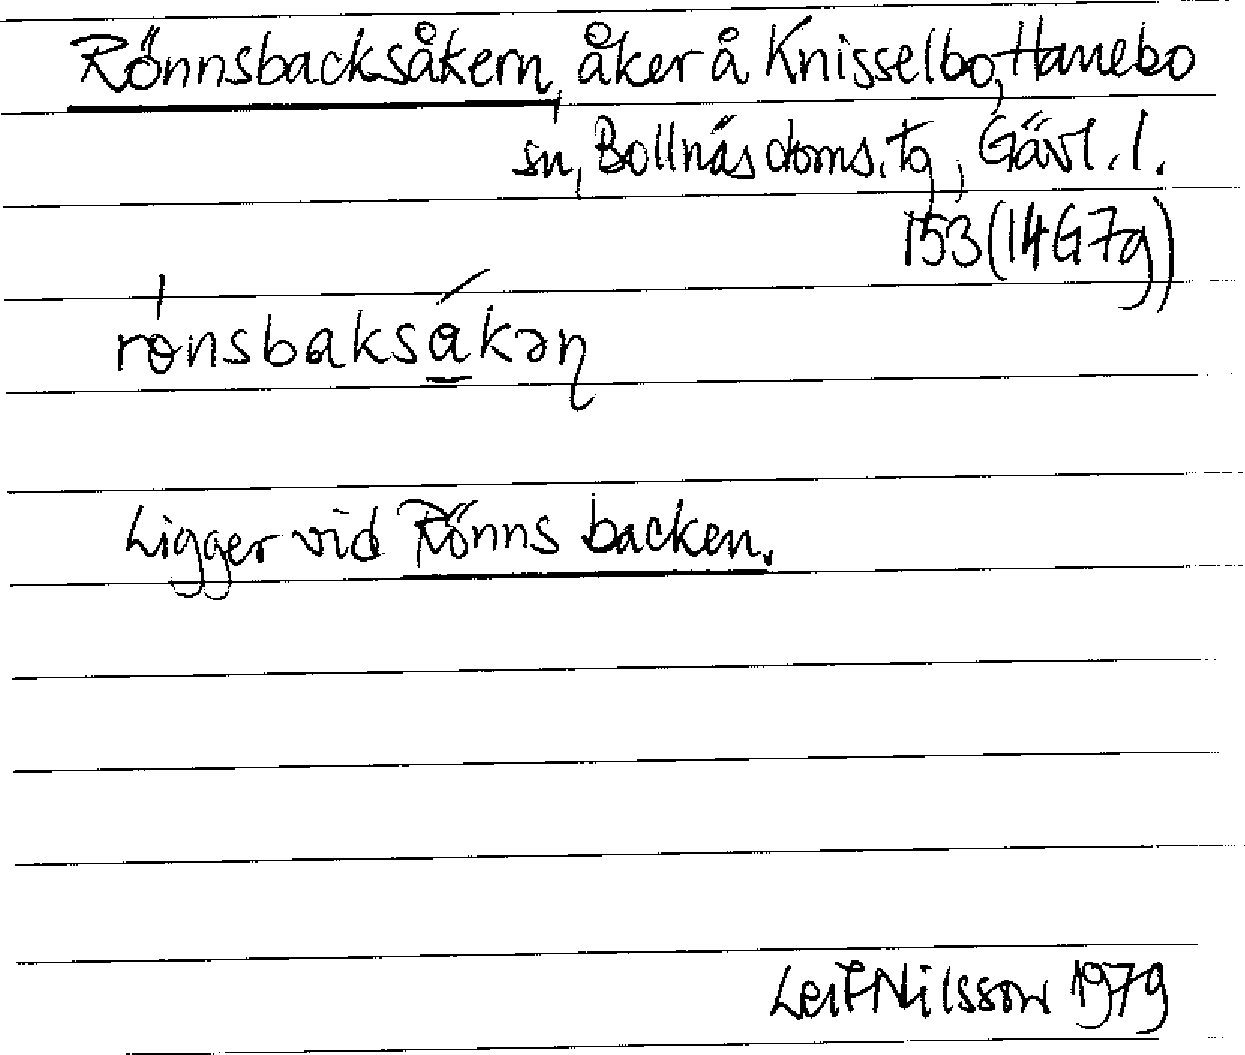 Rönnsbacksåkern, åker å Knisselbo, Hanebo
sn, Bollnäs doms. tg, Gävl. l.
153 (14G7g)
rönsbaksåkəɳ
Ligger vid Rönns backen.
Leif Nilsson 1979